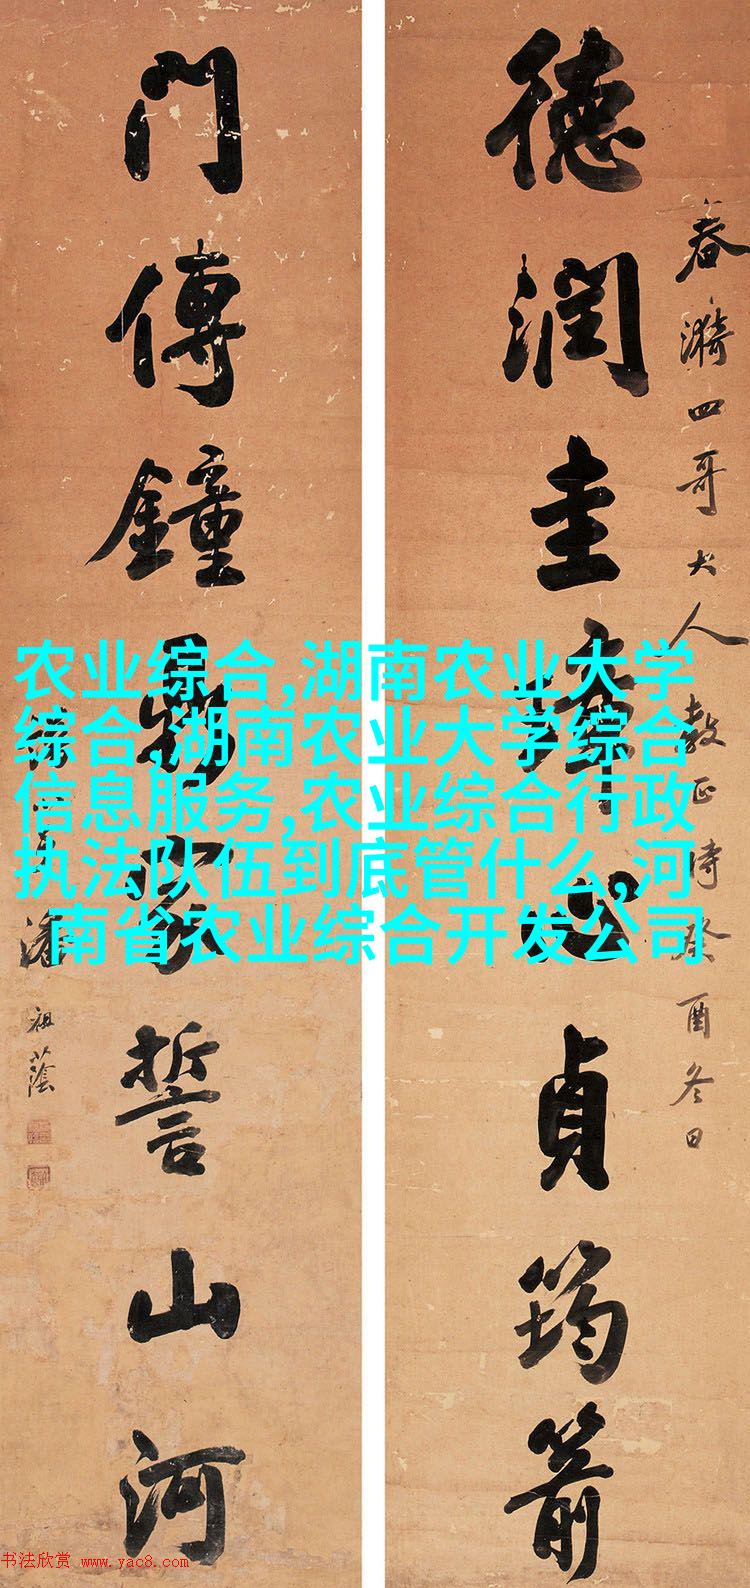 春漪四哥大人教正時癸酉冬日
德潤圭璋心貞筠箭
門傳鐘鼎家誓山河
弟潘祖蔭
农业综合,湖南农业大学
综合,湖南农业大学综合
信息服务,农业综合行政
执法队伍到底管什么,河
南省农业综合开发公司
书法欣赏 www.yac8.com